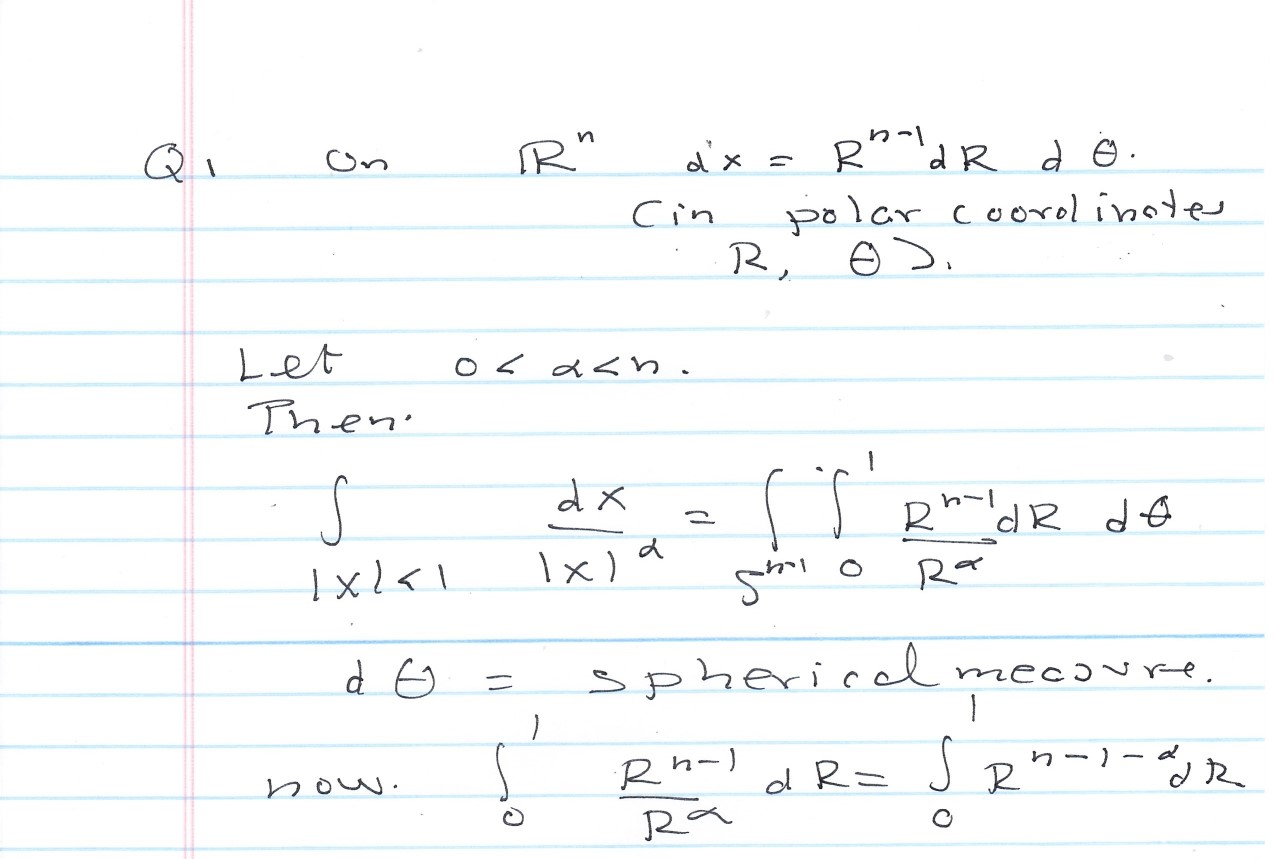 Q1 On ℝⁿ dx = Rⁿ⁻¹dR dθ.
(in polar coordinates
R, θ).
Let 0 < α < n.
Then.
∫_{|x|<1} dx/|x|^α = ∫_{S^{n-1}} ∫_0^1 R^{n-1}dR/R^α dθ
dθ = spherical measure.
now. ∫_0^1 R^{n-1}/R^α dR = ∫_0^1 R^{n-1-α} dR